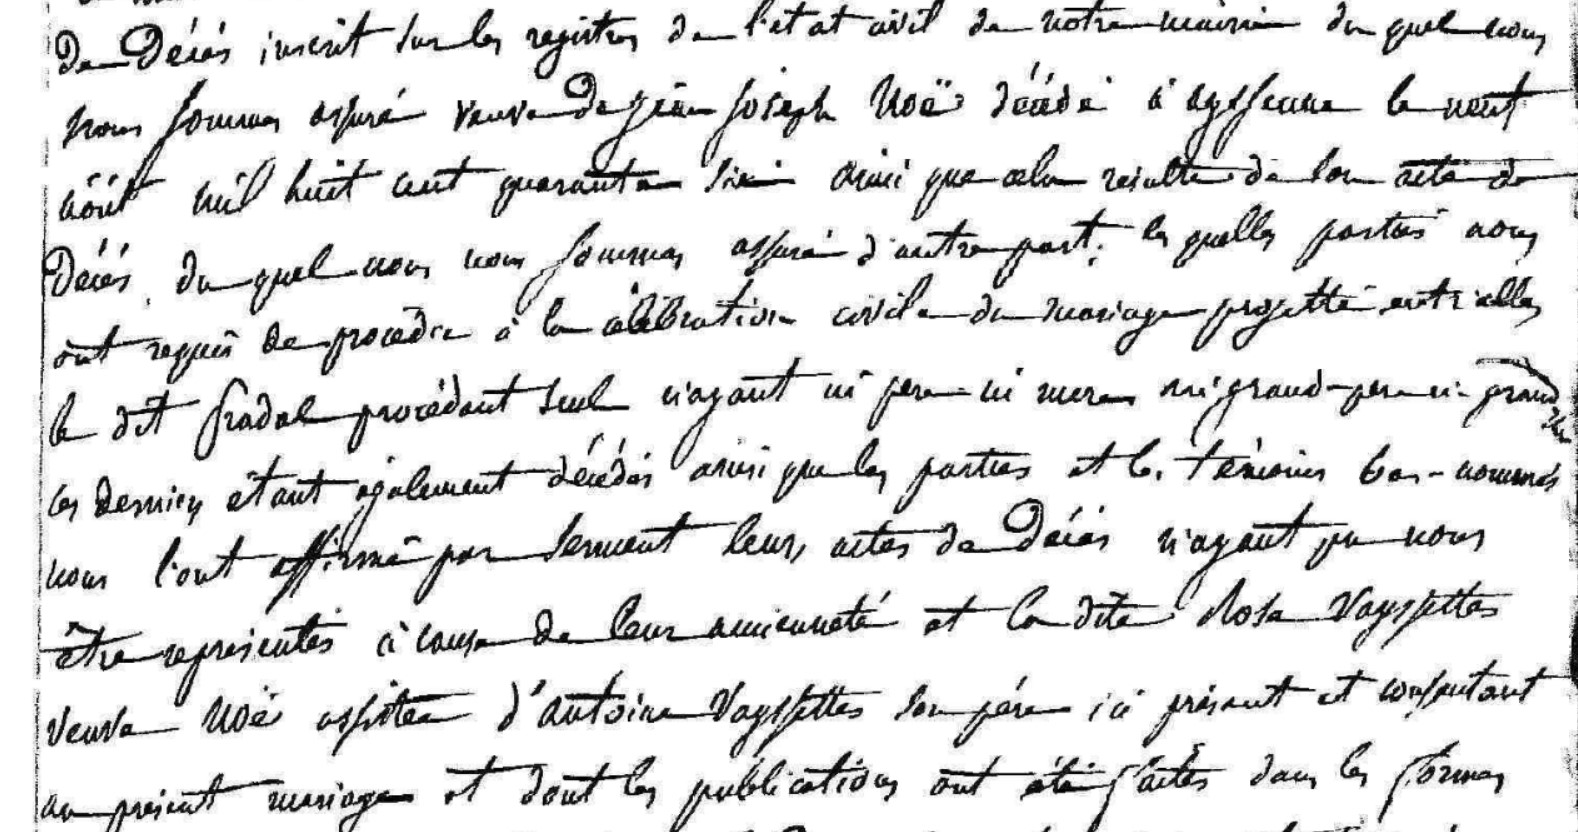 de Décés inscrit sur les registres de l'etat civil de notre mairie du quel nous
nous sommes assuré veuve de Jean Joseph Noë décédé à ayssenne le neuf
août mil huit cent quarante six ainsi que cela resulte de son acte de
Décés, du quel nous nous sommes assuré d'autre part; les quelles parties nous
ont requis de procéder à la célébration civile du mariage projetté entr'elles
le dit fradal procédant seul n'ayant ni pere ni mere ni grand-pere ni grand mere
ces derniers étant également décédés ainsi que les parties et les témoins bas-nommés
nous l'ont affirmé par serment leurs actes de Décés n'ayant pu nous
être représentés à cause de leur ancienneté et la dite Rose Vayssettes
veuve Noë assistée d'antoine Vayssettes son pére ici présent et consentant
au présent mariage et dont les publications ont été faites dans les formes